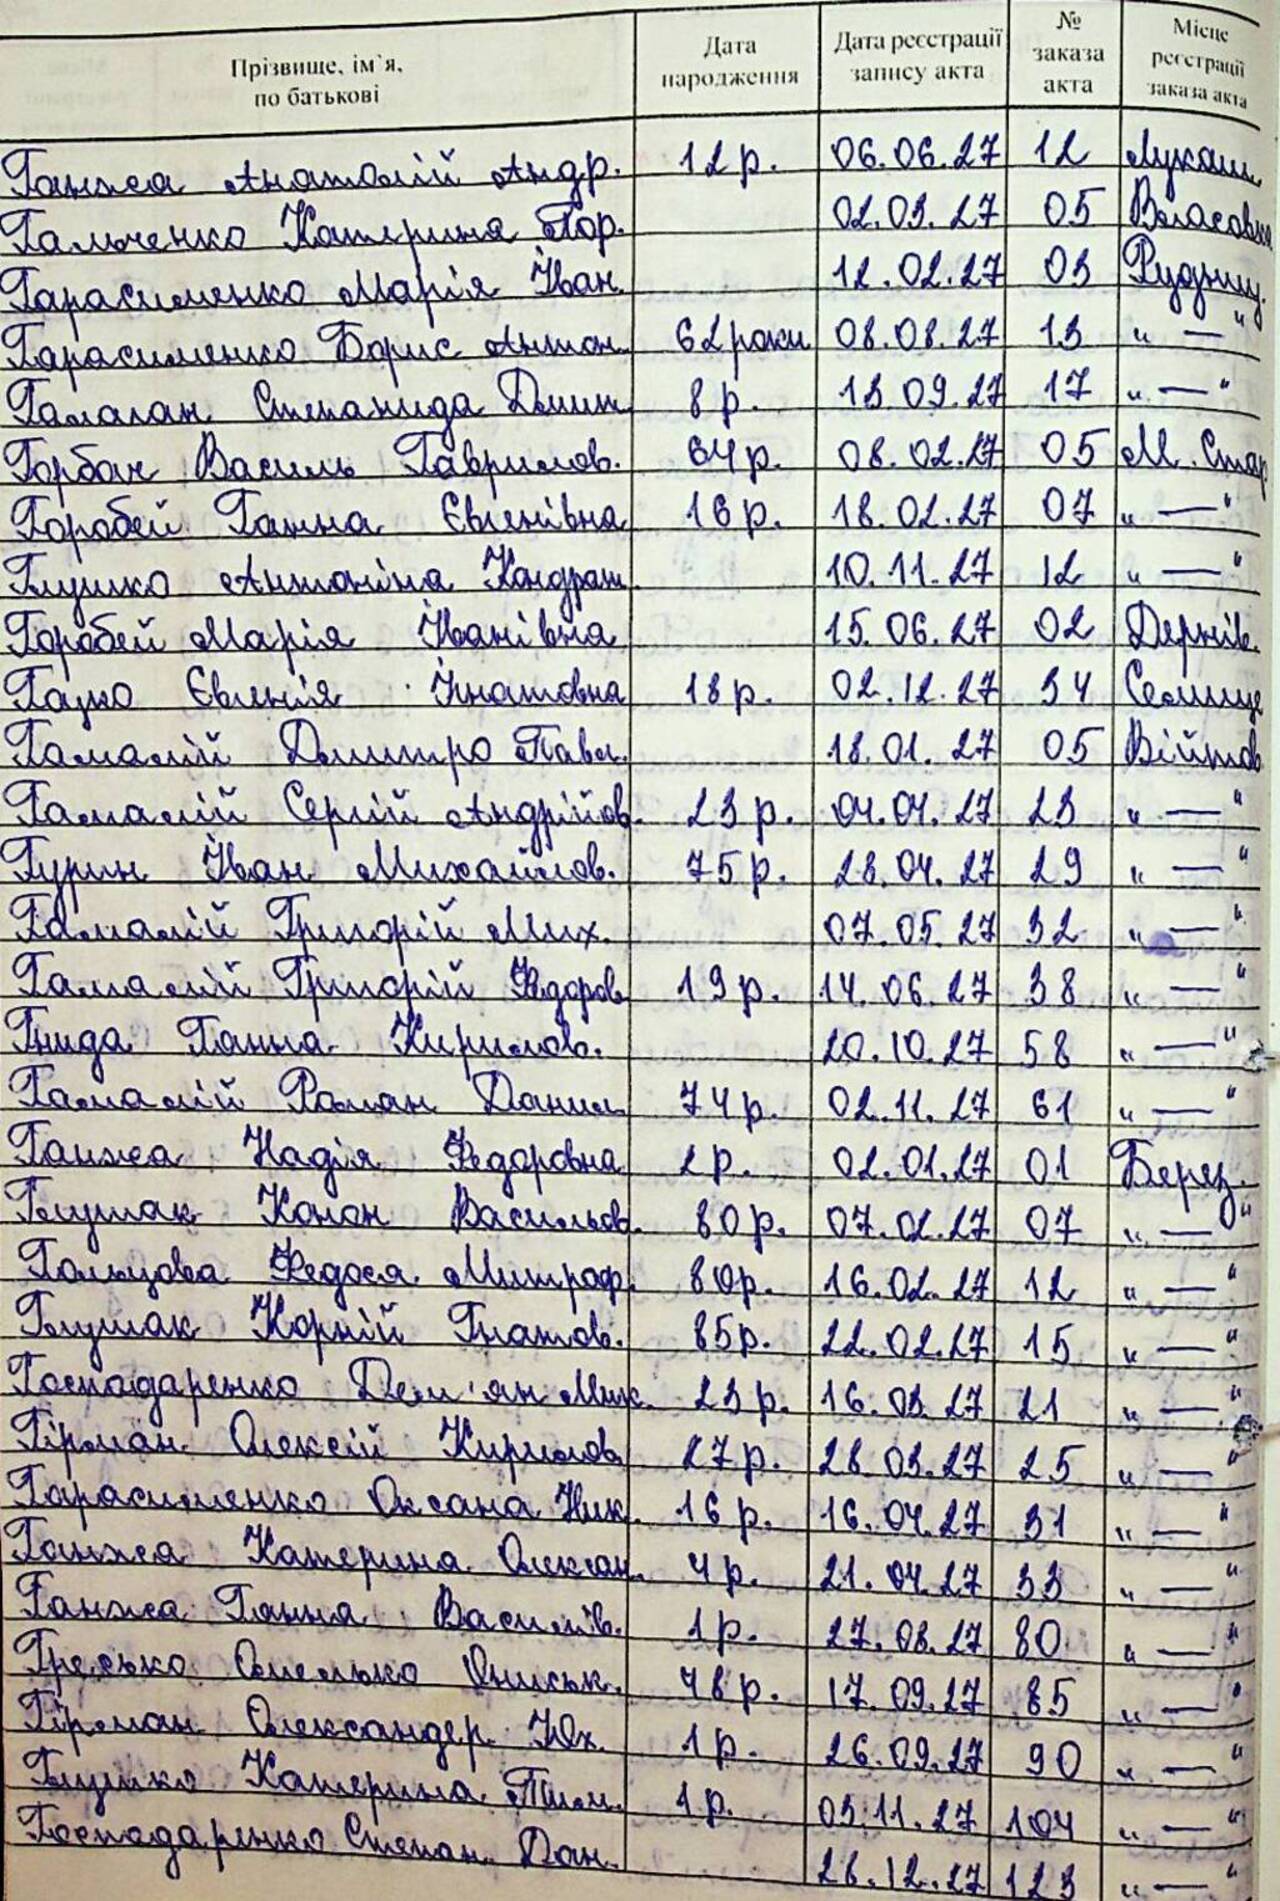 Прізвище, ім`я, по батькові Дата народження Дата реєстрації запису акта № заказа акта Місце реєстрації заказа акта
Ганжа Анатолій Андр. 12 р. 06.06.27 12 Лукаш.
Гальченко Катерина Гор. 02.03.27 05 Власовка
Гарасименко Марія Іван. 12.02.27 03 Рудниц.
Гарасименко Борис Антон. 62 роки 08.08.27 13 " — "
Галаган Степанида Дмит. 8 р. 13.09.27 17 " — "
Горбач Василь Гаврилов. 64 р. 08.02.27 05 М. Стар.
Горобей Ганна Євгенівна 16 р. 18.02.27 07 " — "
Глушко Антоніна Кондрат. 10.11.27 12 " — "
Горобей Марія Іванівна 15.06.27 02 Дернів.
Гацко Євгенія Ігнатовна 18 р. 02.12.27 34 Селище
Гамалій Дмитро Павл. 18.01.27 05 Війтов.
Гамалій Сергій Андрійов. 23 р. 04.04.27 23 " — "
Гурин Іван Михайлов. 75 р. 28.04.27 29 " — "
Гамалій Григорій Мих. 07.05.27 32 " — "
Гамалій Григорій Федоров. 19 р. 14.06.27 38 " — "
Гнида Ганна Кирилов. 20.10.27 58 " — "
Гамалій Роман Данил. 74 р. 02.11.27 61 " — "
Ганжа Надія Федоровна 2 р. 02.01.27 01 Берез.
Глушак Конон Васильов. 80 р. 07.02.27 07 " — "
Гольцова Федося Митроф. 80 р. 16.02.27 12 " — "
Глушак Корній Гнатов. 85 р. 22.02.27 15 " — "
Господаренко Дем'ян Мик. 23 р. 16.03.27 21 " — "
Гірман Олексій Кирилов. 27 р. 28.03.27 25 " — "
Гарасименко Оксана Ник. 16 р. 16.04.27 31 " — "
Ганжа Катерина Олексан. 4 р. 21.04.27 33 " — "
Ганжа Ганна Василів. 1 р. 27.08.27 80 " — "
Гресько Омелько Ониськ. 48 р. 17.09.27 85 " — "
Гірман Олександер Юх. 1 р. 26.09.27 90 " — "
Глушко Катерина Тим. 1 р. 03.11.27 104 " — "
Господаренко Степан Дан. 26.12.27 123 " — "